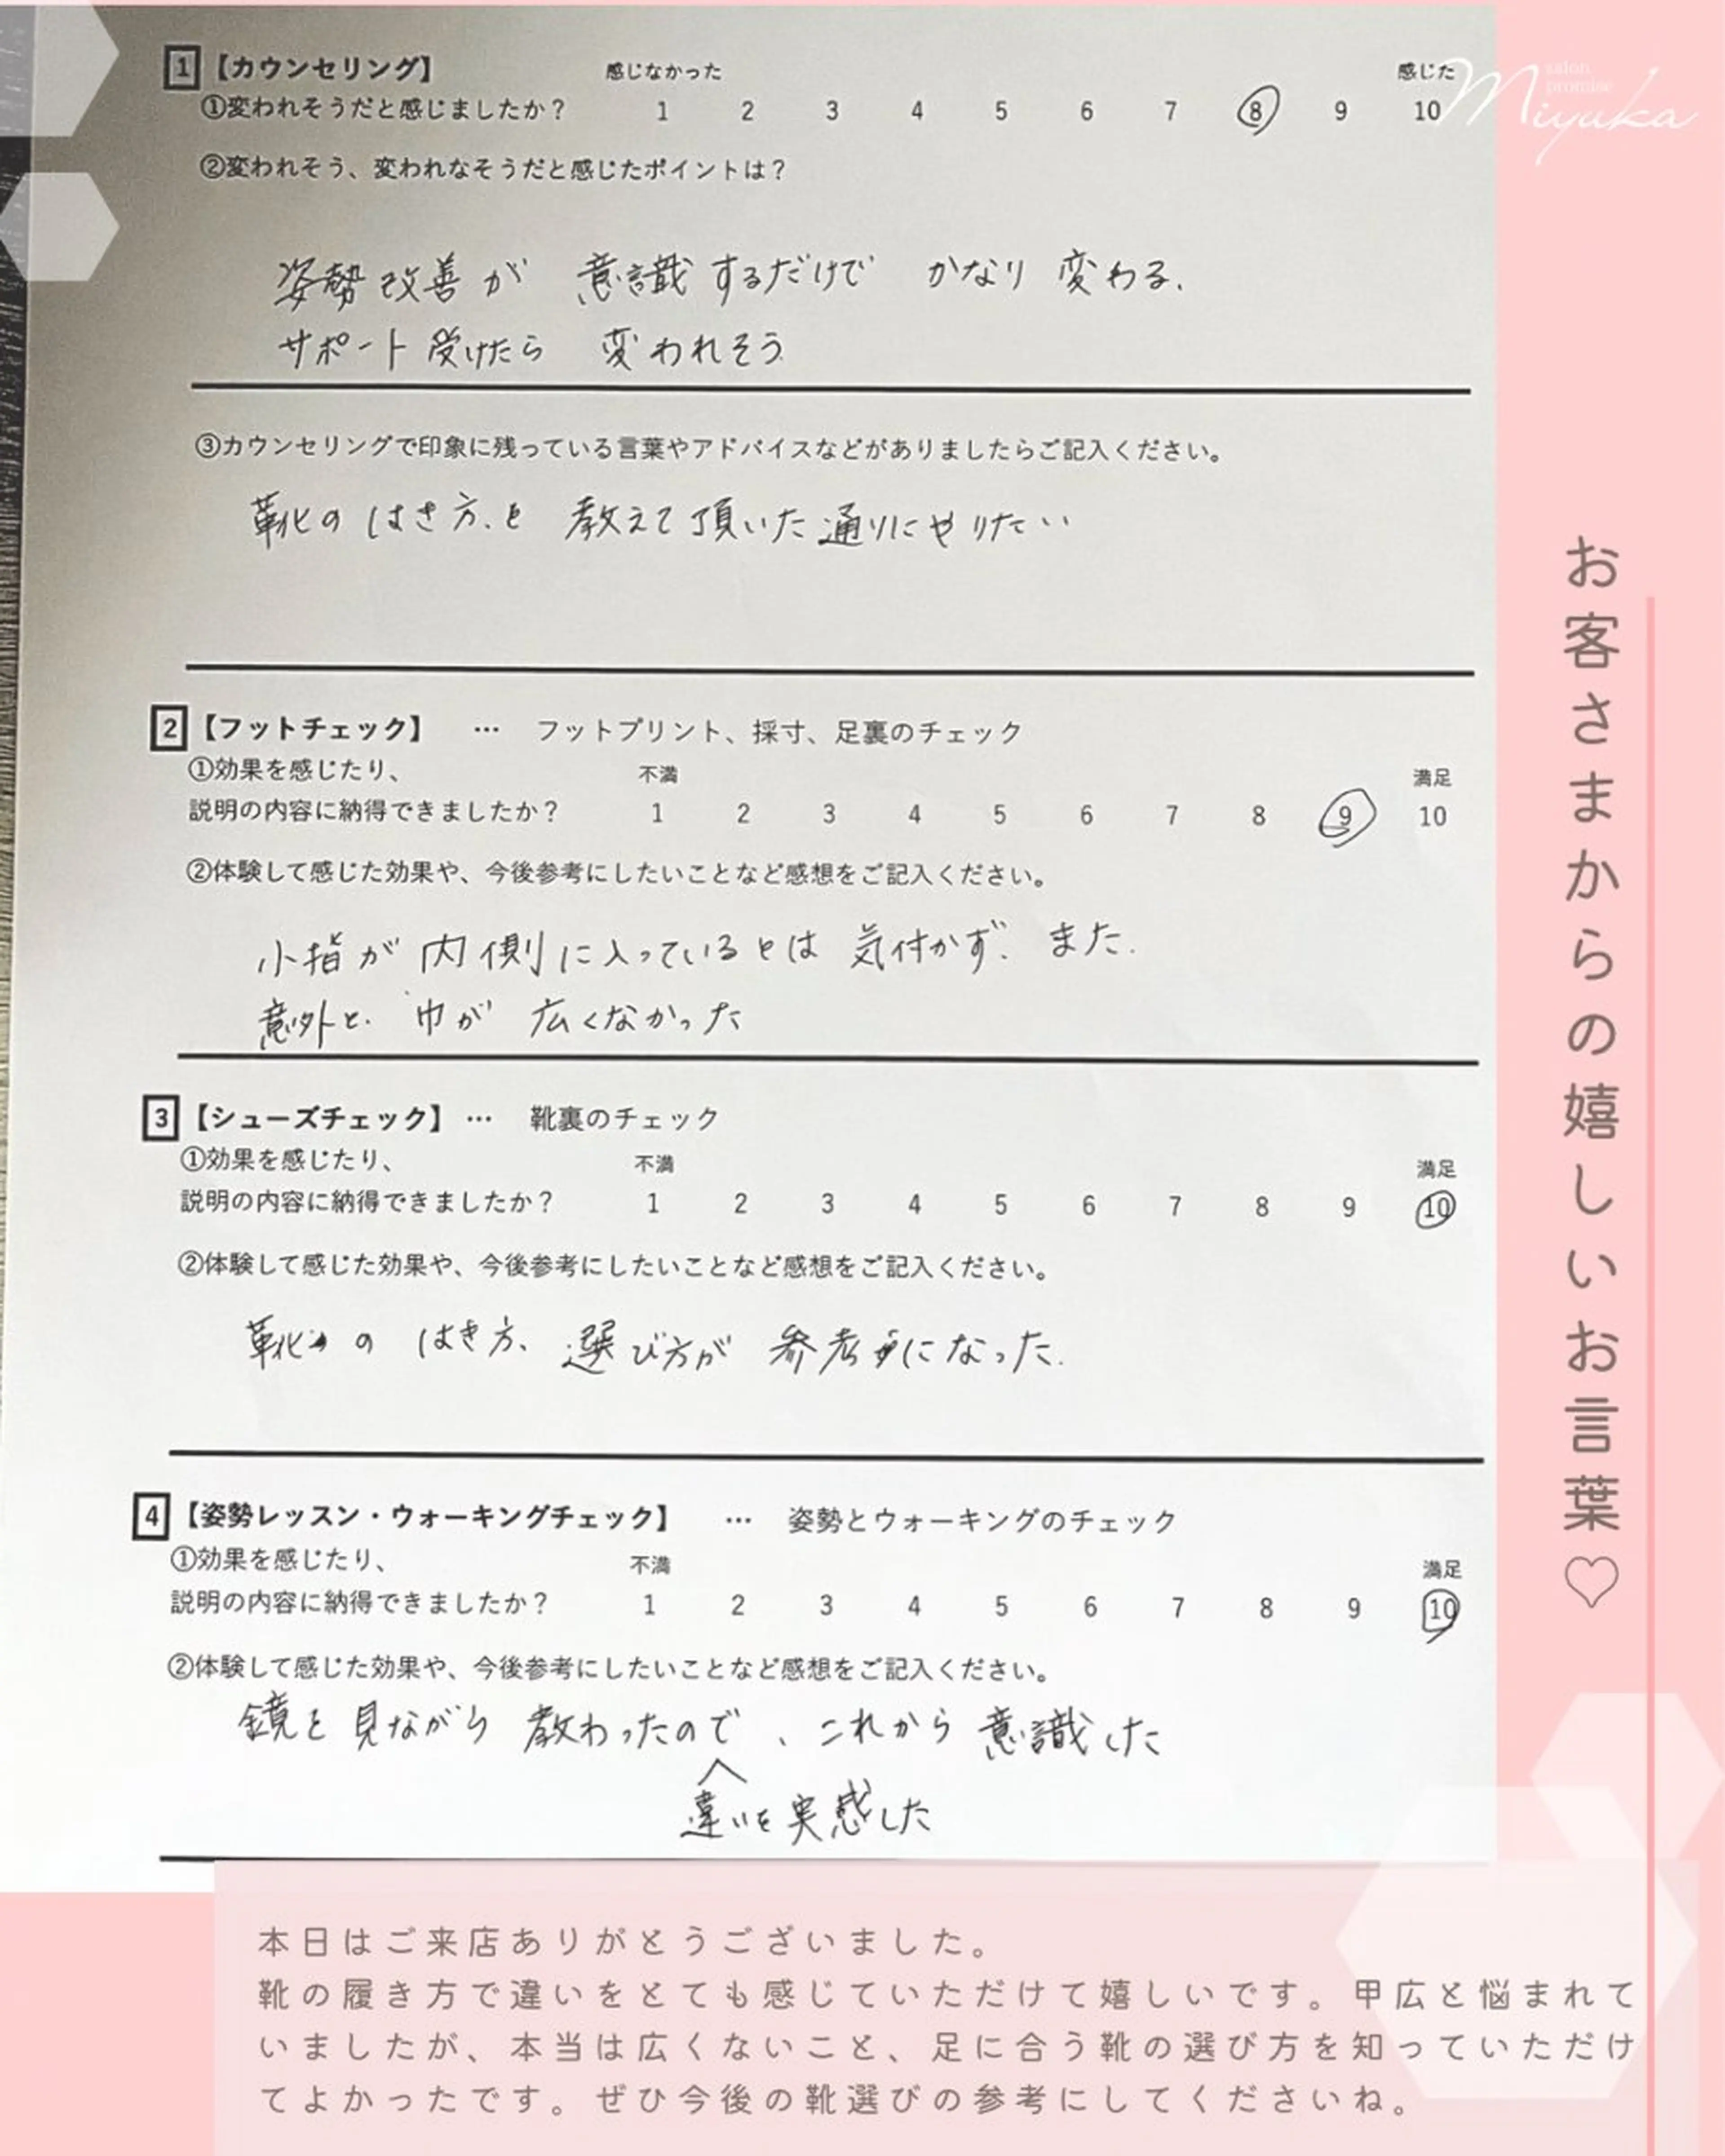 1 【カウンセリング】 感じなかった 感じた
①変われそうだと感じましたか? 1 2 3 4 5 6 7 8 9 10
②変われそう、変われなそうだと感じたポイントは?
姿勢改善が 意識するだけで かなり 変わる.
サポート受けたら 変われそう
③カウンセリングで印象に残っている言葉やアドバイスなどがありましたらご記入ください。
靴のはき方.を 教えて頂いた通りにやりたい
2 【フットチェック】 … フットプリント、採寸、足裏のチェック
①効果を感じたり、 不満 満足
説明の内容に納得できましたか? 1 2 3 4 5 6 7 8 9 10
②体験して感じた効果や、今後参考にしたいことなど感想をご記入ください。
小指が 内側に入っているとは 気付かず、また.
意外と. 巾が 広くなかった
3 【シューズチェック】 … 靴裏のチェック
①効果を感じたり、 不満 満足
説明の内容に納得できましたか? 1 2 3 4 5 6 7 8 9 10
②体験して感じた効果や、今後参考にしたいことなど感想をご記入ください。
靴の はき方、選び方が 参考になった.
4 【姿勢レッスン・ウォーキングチェック】 … 姿勢とウォーキングのチェック
①効果を感じたり、 不満 満足
説明の内容に納得できましたか? 1 2 3 4 5 6 7 8 9 10
②体験して感じた効果や、今後参考にしたいことなど感想をご記入ください。
鏡を見ながら 教わったので、これから意識した
違いを実感した
salon
promise
Miyuka
お客さまからの嬉しいお言葉♡
本日はご来店ありがとうございました。
靴の履き方で違いをとても感じていただけて嬉しいです。甲広と悩まれて
いましたが、本当は広くないこと、足に合う靴の選び方を知っていただけ
てよかったです。ぜひ今後の靴選びの参考にしてくださいね。